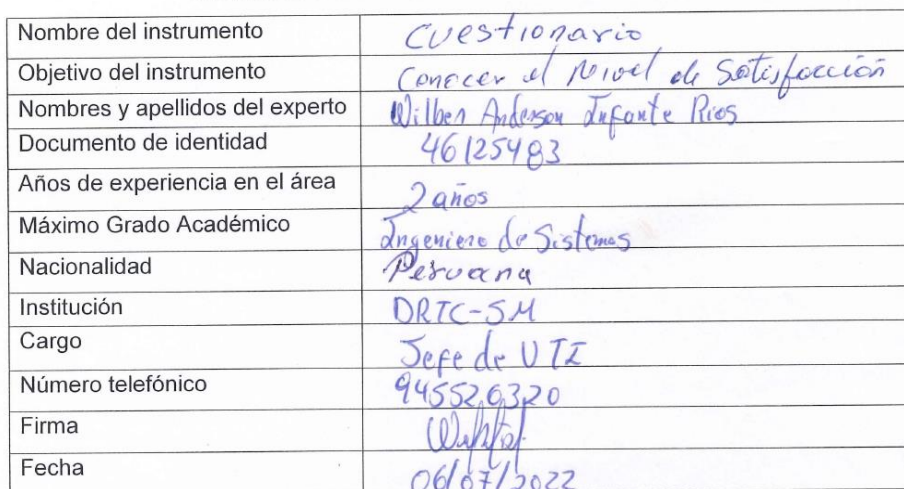 Nombre del instrumento Cuestionario
Objetivo del instrumento Conocer el Nivel de Satisfacción
Nombres y apellidos del experto Wilber Anderson Infante Rios
Documento de identidad 46125483
Años de experiencia en el área 2 años
Máximo Grado Académico Ingeniero de Sistemas
Nacionalidad Peruana
Institución DRTC-SM
Cargo Jefe de UTI
Número telefónico 945526320
Firma
Fecha 06/07/2022